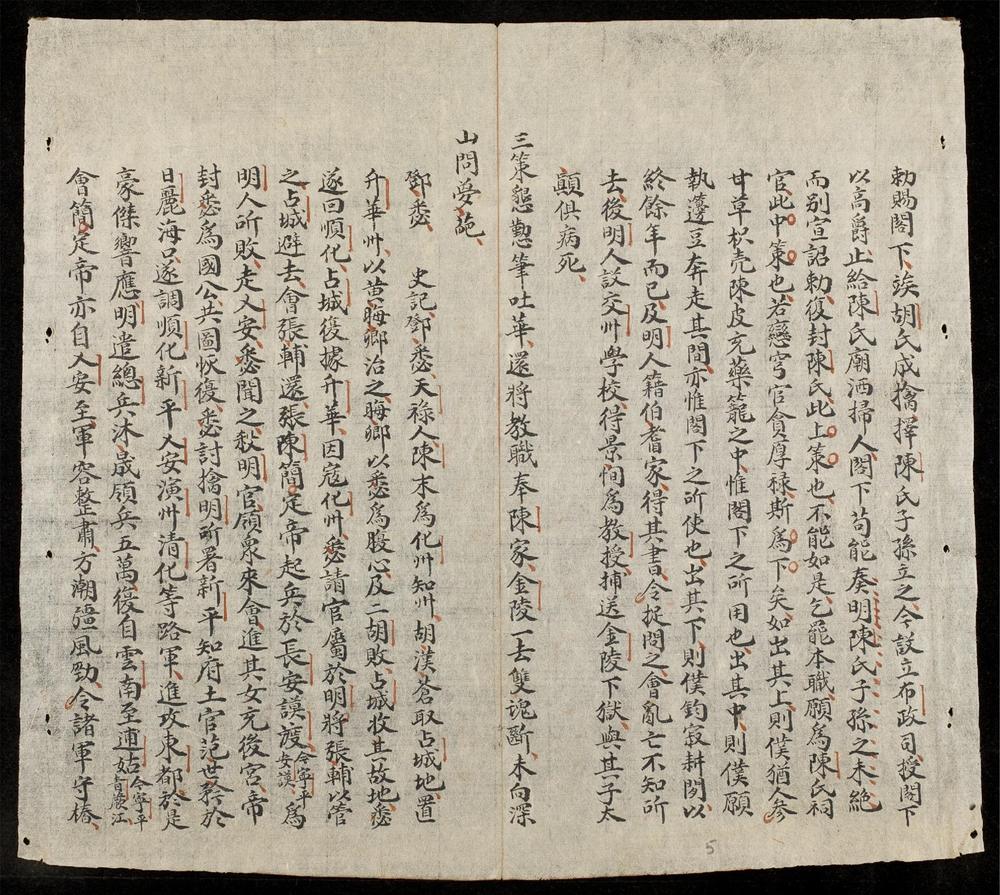 勅賜閤下、竢胡氏成擒擇陳氏子孫立之、今設立布政司授閤下
以高爵止給陳氏廟洒掃人閤下苟能奏明陳氏子孫之未絶
而别宣詔勅、復封陳氏、此上策也、不能如是乞罷本職願爲陳氏祠
官此中策也若戀穹官貪厚祿、斯爲下矣如出其上則僕猶人參
甘草枳壳陳皮充藥籠之中、惟閤下之所用也、出其中、則僕願
執籩豆奔走其間亦惟閤下之所使也、出其下、則僕釣寂耕閑以
終餘年而已、及明人籍伯耆家、得其書、令捉問之、會亂亡不知所
去、後明人設交州學校、得景恂爲教授、捕送金陵下獄與其子太
顛俱病死、
三策懇懃筆吐華、還將教職奉陳家、金陵一去雙魂斷、未向深
山問夢葩、
鄧悉 史記鄧悉、天祿人、陳末爲化州知州、胡漢蒼取占城地、置
升華州、以黄晦卿治之、晦卿以悉爲腹心、及二胡敗、占城收其故地、悉
遂回順化、占城復據升華、因寇化州、悉請官屬於明將張輔以管
之、占城避去、會張輔還、張陳簡定帝起兵於長安謨渡今寧平安謨爲
明人所敗、走入安、悉聞之、殺明官、領衆來會進其女充後宮、帝
封悉爲國公共圖恢復、悉討擒明所署新平知府土官范世矜於
日麗海口、遂調順化新平乂安演州清化等路軍、進攻東都、於是
豪傑響應、明遣總兵沐晟領兵五萬、復自雲南至逋姑今寧平省𢊗江
會簡定帝亦自乂安至、軍容整肅、方潮彊風勁、令諸軍守樁、